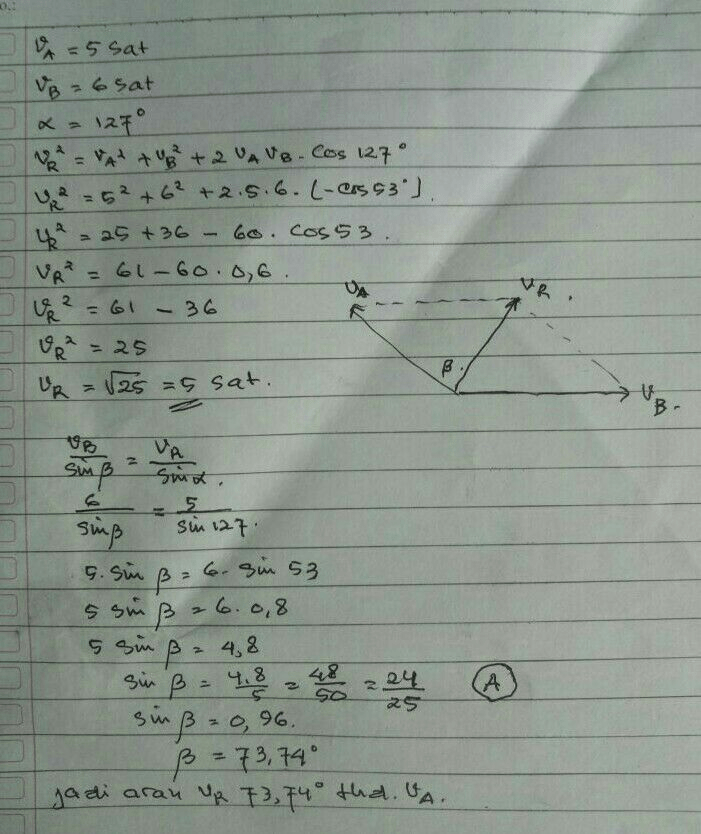 o.:
VA = 5 sat
VB = 6 sat
α = 127°
VR² = VA² + VB² + 2 VA VB . Cos 127°
VR² = 5² + 6² + 2.5.6. (-cos 53°)
VR² = 25 + 36 - 60 . Cos 53 .
VR² = 61 - 60 . 0,6 .
VR² = 61 - 36
VR² = 25
VR = √25 = 5 sat .
VA
VR .
β .
VB .
VB/sin β = VR/sin α .
6/sin β = 5/sin 127 .
5 . sin β = 6 . sin 53
5 sin β = 6 . 0,8
5 sin β = 4,8
sin β = 4.8/5 = 48/50 = 24/25
A
sin β = 0,96 .
β = 73,74°
Jadi arah VR 73,74° thd. VA .